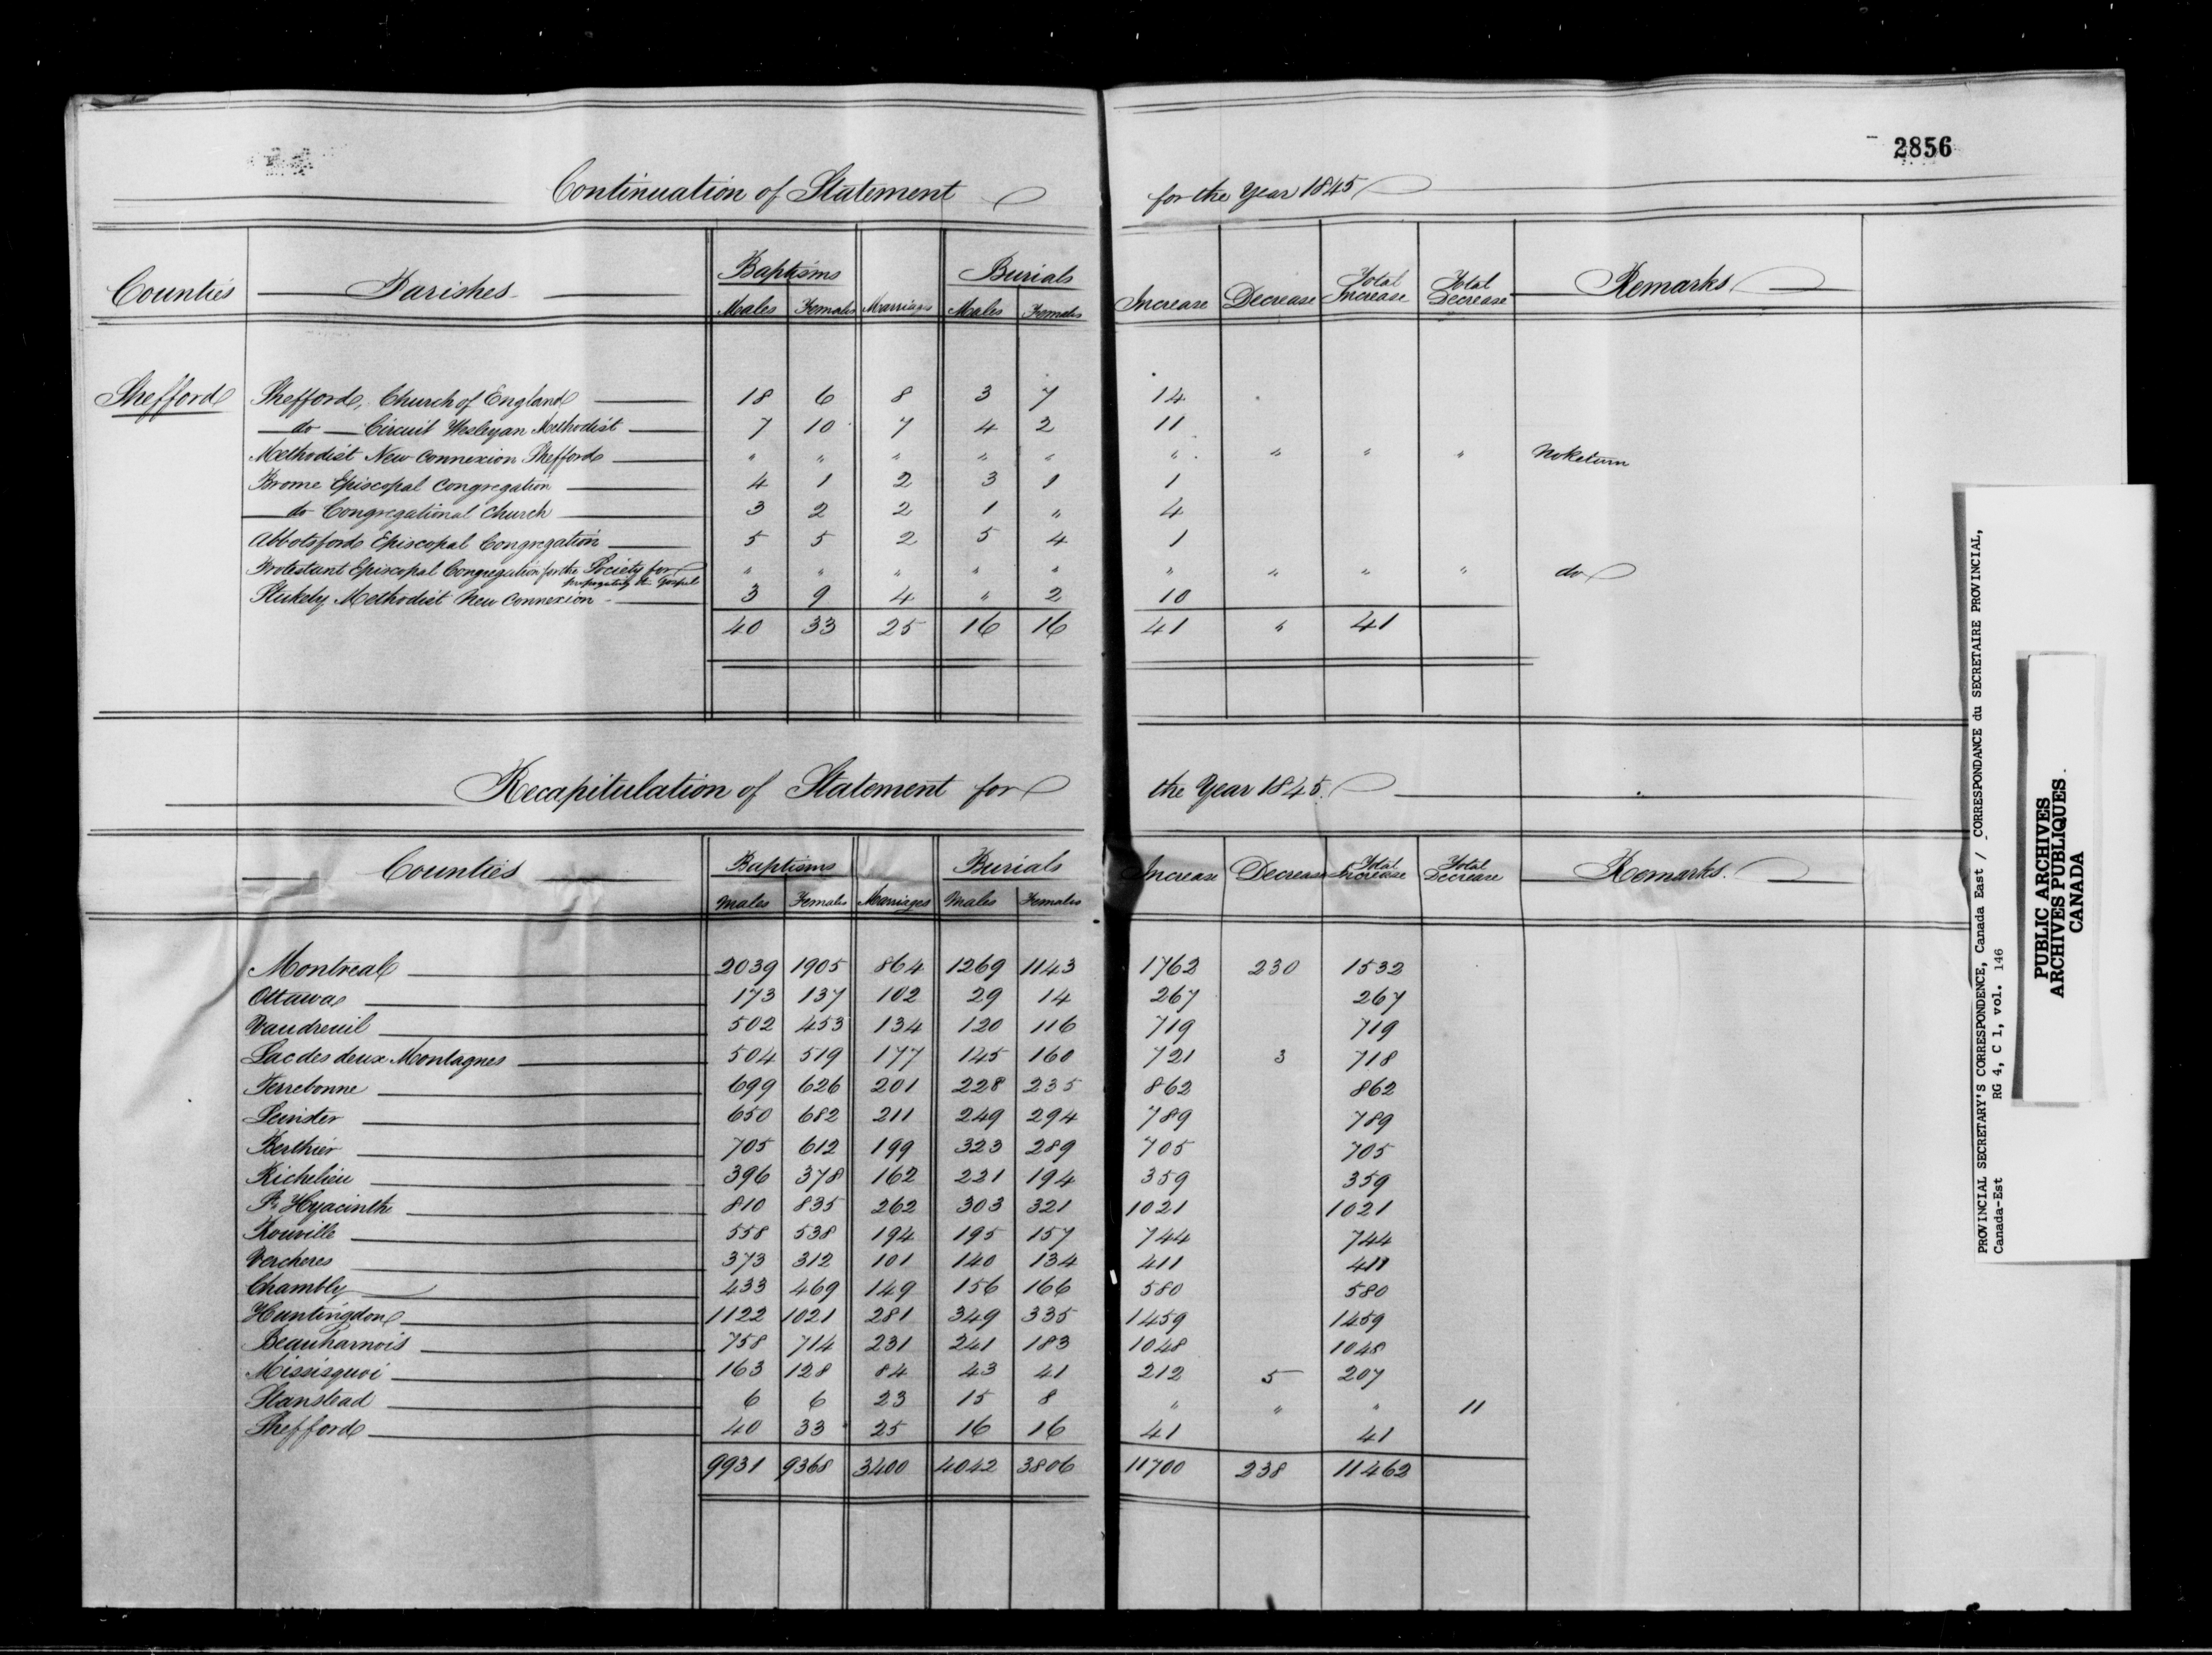 2856
Continuation of Statement for the Year 1845
Counties Parishes Baptisms Burials
Males Females Marriages Males Females Increase Decrease Total Increase Total Decrease Remarks
Shefford Shefford, Church of England 18 6 8 3 7 14
do Circuit Wesleyan Methodist 7 10 7 4 2 11
Methodist New Connexion Shefford " " " " " " " " " No Return
Brome Episcopal Congregation 4 1 2 3 1 1
do Congregational Church 3 2 2 1 " 4
Abbotsford Episcopal Congregation 5 5 2 5 4 1
Protestant Episcopal Congregation for the Society for " " " " " " " " " do
propagating the Gospel
Stukely Methodist New Connexion 3 9 4 " 2 10
40 33 25 16 16 41 " 41
Recapitulation of Statement for the Year 1845.
Counties Baptisms Burials
Males Females Marriages Males Females Increase Decrease Total Increase Total Decrease Remarks.
Montreal 2039 1905 864 1269 1143 1762 230 1532
Ottawa 173 137 102 29 14 267 267
Vaudreuil 502 453 134 120 116 719 719
Lac des deux Montagnes 504 519 177 145 160 721 3 718
Terrebonne 699 626 201 228 235 862 862
Leinster 650 682 211 249 294 789 789
Berthier 705 612 199 323 289 705 705
Richelieu 396 378 162 221 194 359 359
St. Hyacinth 810 835 262 303 321 1021 1021
Rouville 558 538 194 195 157 744 744
Vercheres 373 312 101 140 134 411 411
Chambly 433 469 149 156 166 580 580
Huntingdon 1122 1021 281 349 335 1459 1459
Beauharnois 758 714 231 241 183 1048 1048
Missisquoi 163 128 84 43 41 212 5 207
Stanstead 6 6 23 15 8 " " " 11
Shefford 40 33 25 16 16 41 41
9931 9368 3400 4042 3806 11700 238 11462
PROVINCIAL SECRETARY'S CORRESPONDENCE, Canada East / CORRESPONDANCE du SECRETAIRE PROVINCIAL,
Canada-Est RG 4, C 1, vol. 146
PUBLIC ARCHIVES
ARCHIVES PUBLIQUES
CANADA